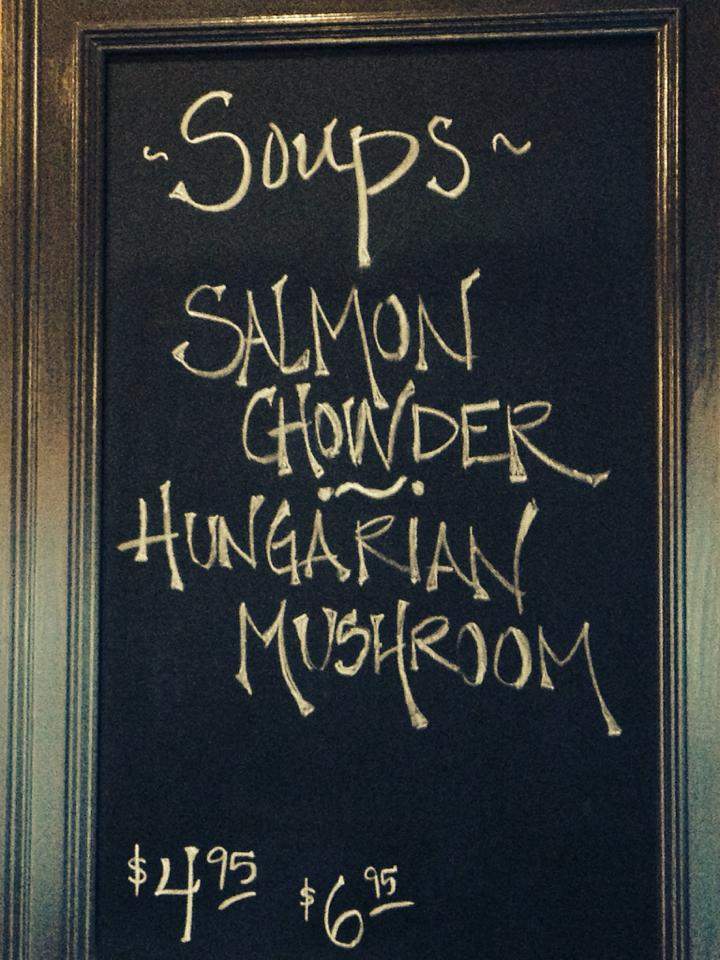 ~Soups~
SALMON
CHOWDER
~
HUNGARIAN
MUSHROOM
$4.95 $6.95